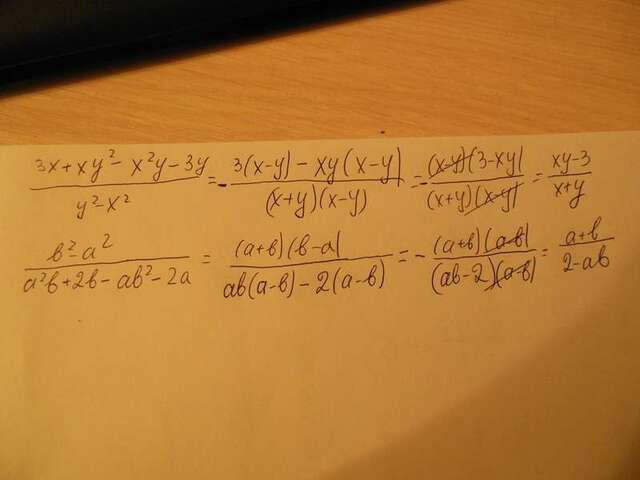 (3x + xy² - x²y - 3y)/(y² - x²) = -(3(x-y) - xy(x-y))/((x+y)(x-y)) = -((x-y)(3-xy))/((x+y)(x-y)) = (xy-3)/(x+y)
(в² - a²)/(a²в + 2в - aв² - 2a) = ((a+в)(в-a))/(aв(a-в) - 2(a-в)) = -((a+в)(a-в))/((aв-2)(a-в)) = (a+в)/(2-aв)